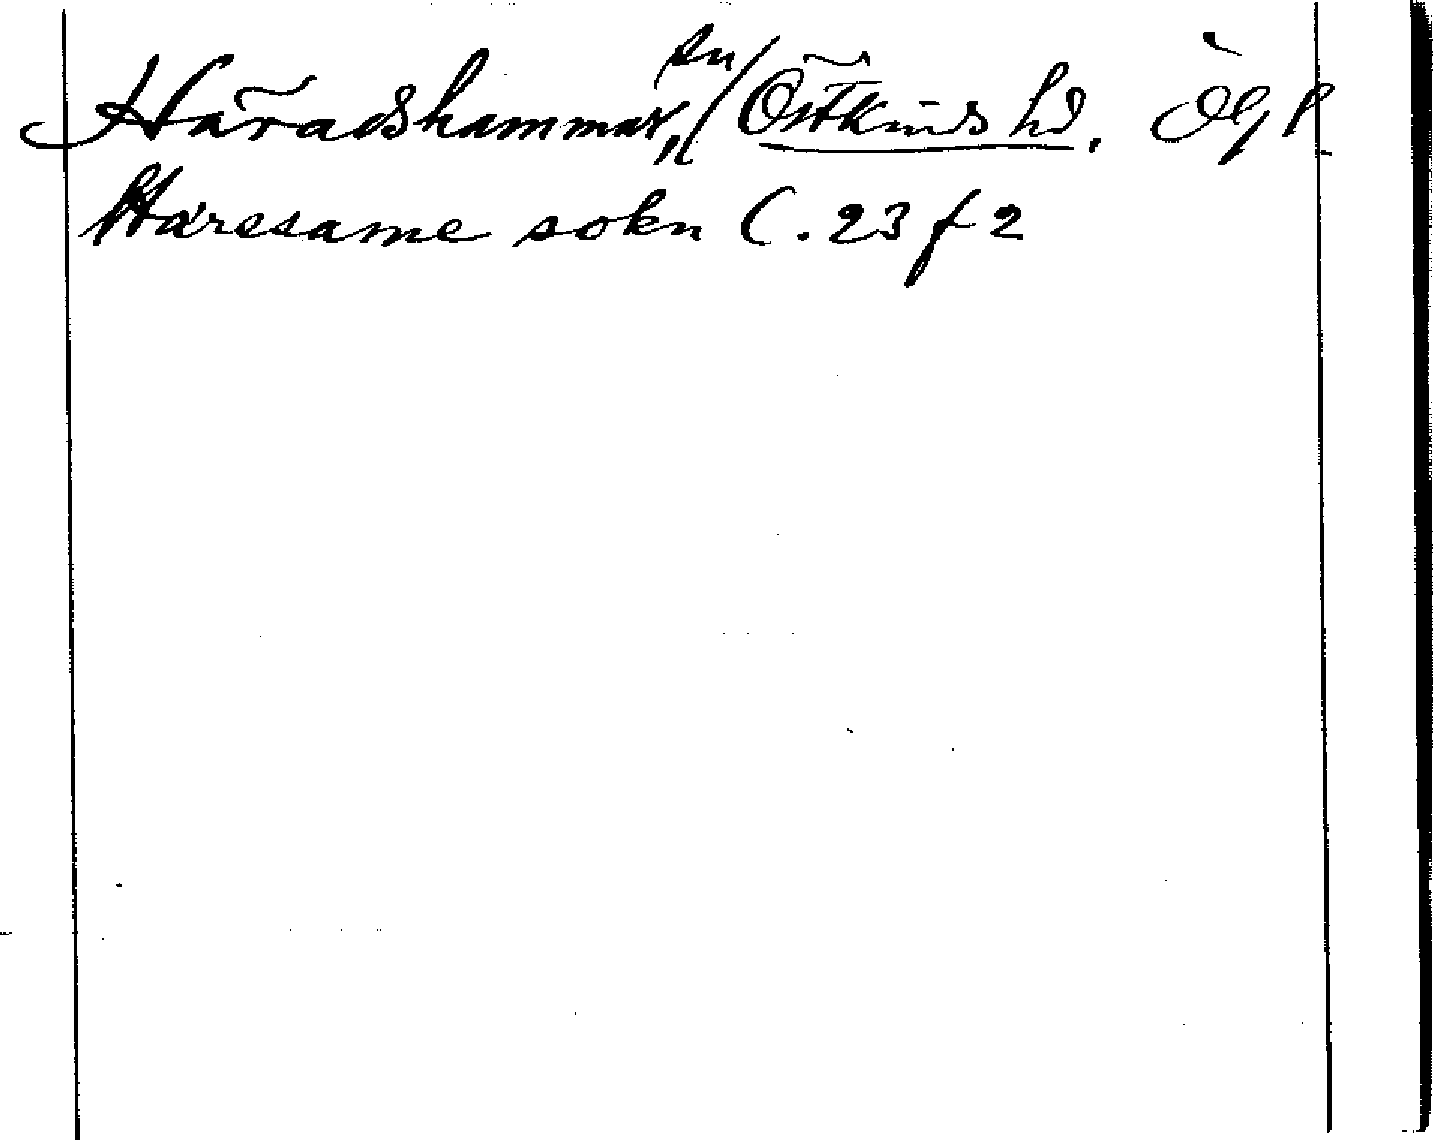 Häradshammar, sn/ Östkinds hd. Ögl
Häresame sokn C. 23 f 2